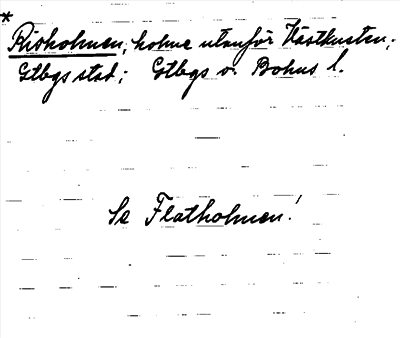 *
Risholmen; holme utanför Västkusten;
Gtbgs stad; Gtbgs o. Bohus l.
Se Flatholmen!